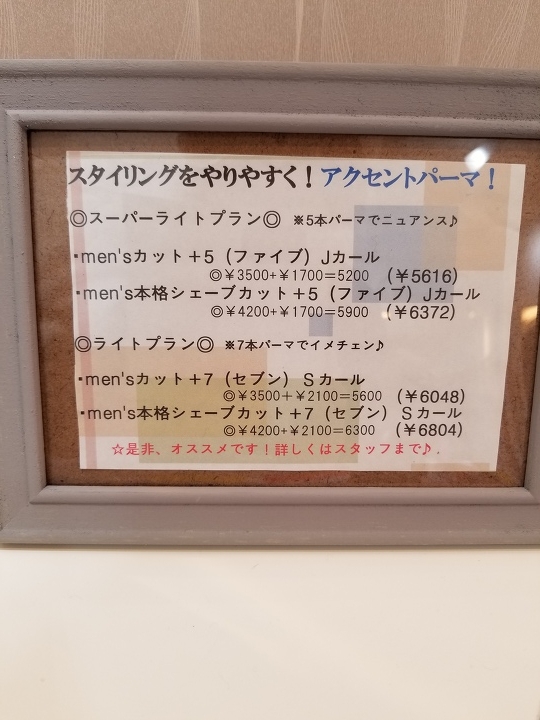 スタイリングをやりやすく！アクセントパーマ！
◎スーパーライトプラン◎ ※5本パーマでニュアンス♪
・men'sカット＋5（ファイブ）Jカール
◎￥3500+￥1700＝5200 （￥5616）
・men's本格シェーブカット＋5（ファイブ）Jカール
◎￥4200+￥1700＝5900 （￥6372）
◎ライトプラン◎ ※7本パーマでイメチェン♪
・men'sカット＋7（セブン）Sカール
◎￥3500＋￥2100＝5600 （￥6048）
・men's本格シェーブカット＋7（セブン）Sカール
◎￥4200+￥2100＝6300 （￥6804）
☆是非、オススメです！詳しくはスタッフまで♪．